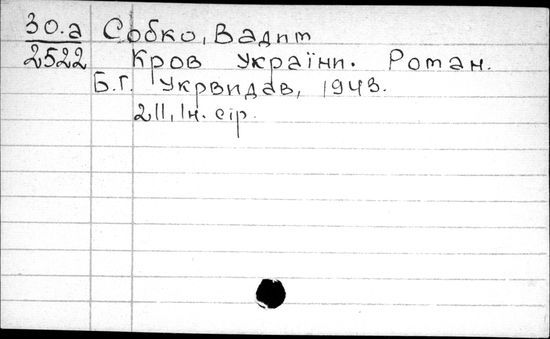 30.а Собко, Вадим
2522 Кров України. Роман.
Б.Г. Укрвидав, 1943.
211, 1н. сір.